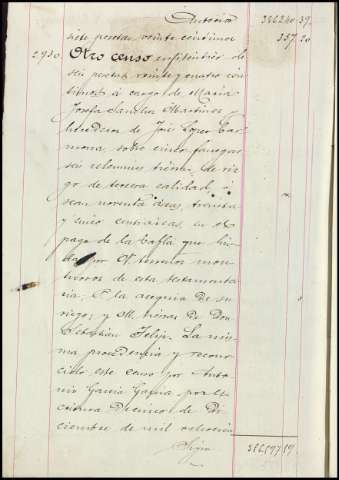 Anterior 386240.39.
siete pesetas veinte centimos 337.20
2930. Otro censo enfiteutico de
seis pesetas veinte y cuatro cen
timos à cargo de Maria
Josefa Sanchez Martinez
heredera de José Lopez Car
mona, sobre cinco fanegas
seis celemines tierra de rie
go de tercera calidad, ó
sean noventa áreas, treinta
y cinco centiareas, en el
pago de la que lin
da por N. terreno mon
tuoso de esta testamenta
ria; P. la acequia de su
riego; y M. tierras de Don
Sebastian Felip. La mis
ma procedencia y recono
cido este censo por Anto
nio Garcia Garcia por es
critura Di
ciembre de mil ochocien
Sigue 386577.59